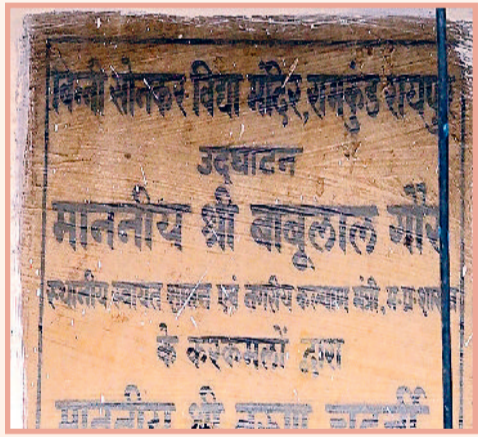 बिन्नी सोनकर विद्या मंदिर, रामकुंड रायपुर
उद्घाटन
माननीय श्री बाबूलाल गौर
स्थानीय स्वायत शासन एवं नगरीय कल्याण मंत्री, म.प्र.शासन
के करकमलों द्वारा
माननीय श्री